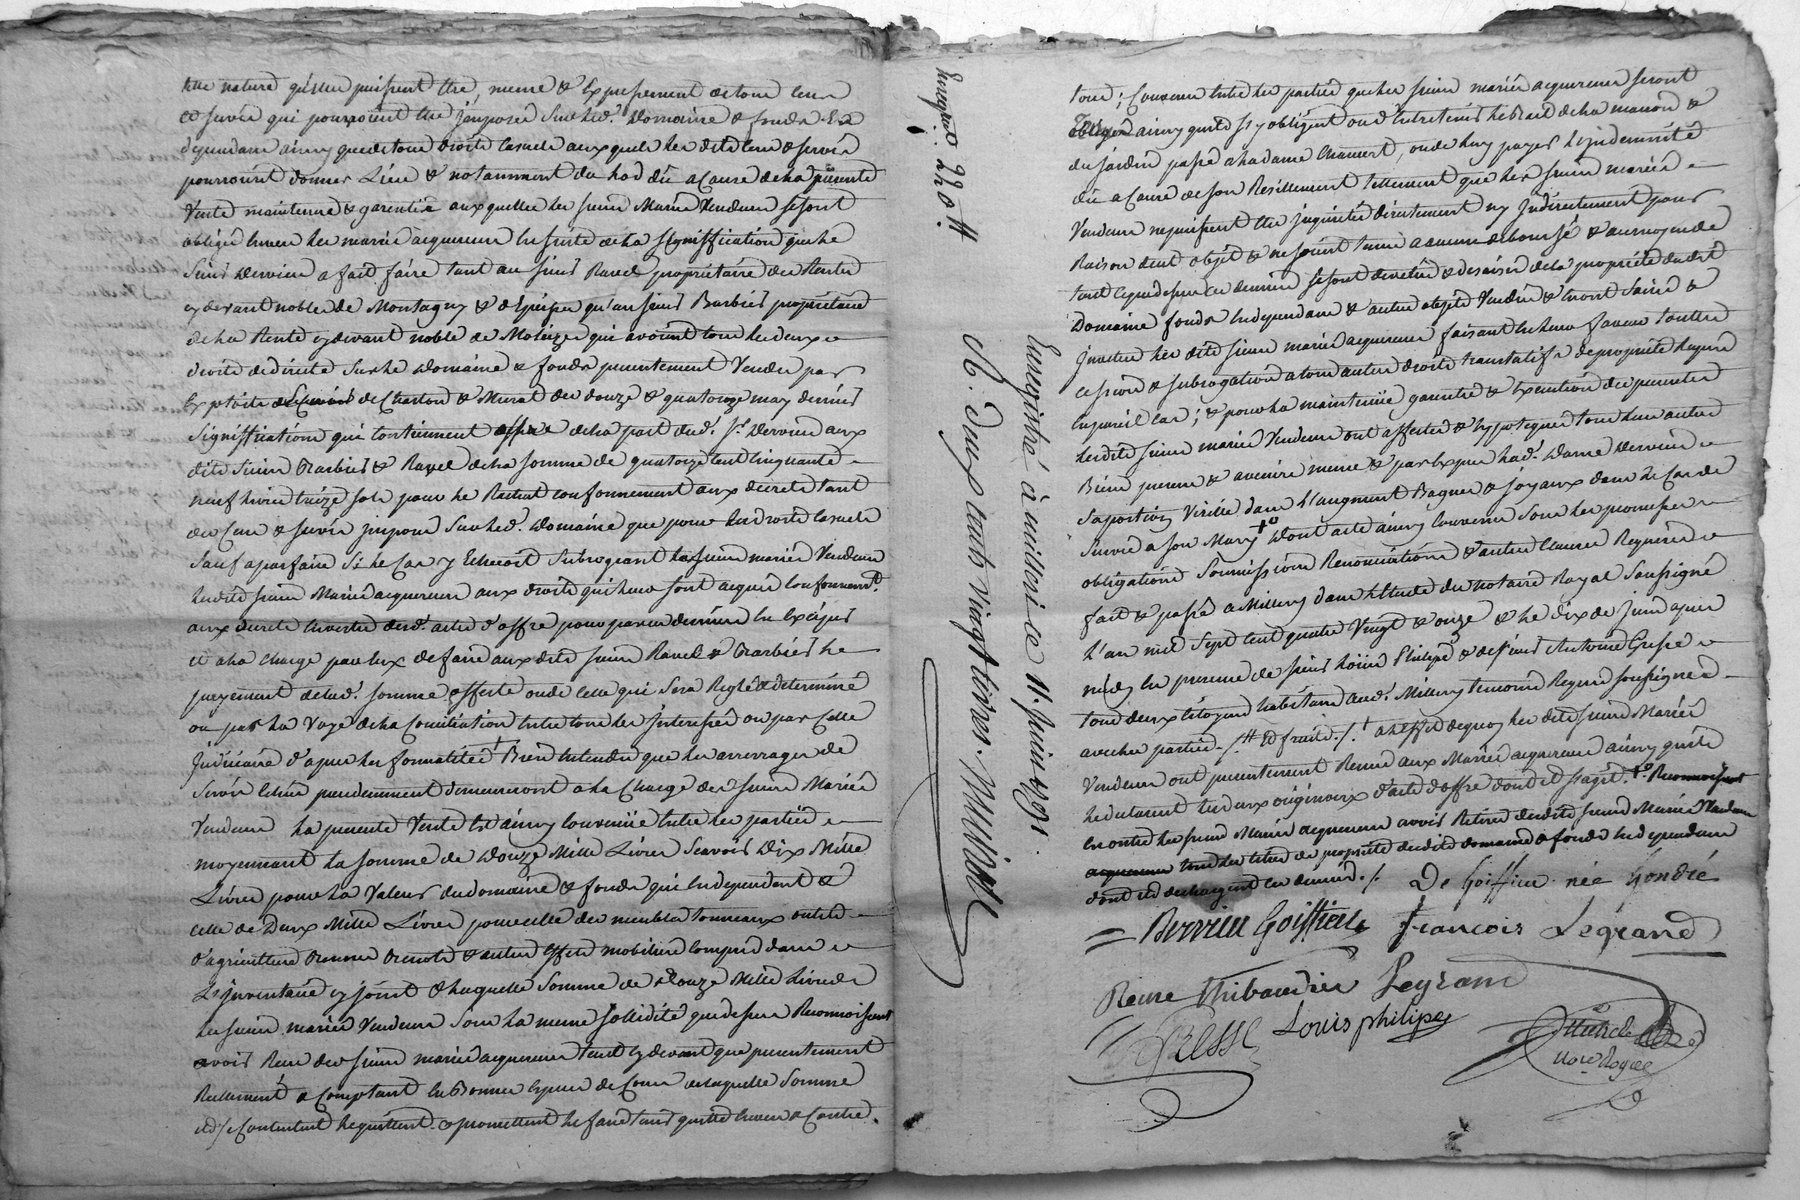 telle nature qu'elles puissent être, meme & Expressement de tous cens
& servis qui pourroient être imposés sur led. Domaine & fonds En
dependans ainsy que de tous droits Casuels auxquels les dits cens & servis
pourroient donner Lieu & notamment du lod dû a Cause de la presente
Vente maintenue & garentie auxquelles les sieurs Mariés Vendeurs se sont
obligés envers les mariés acquereurs En suite de la signiffication que le
sieur Dervieu a fait faire tant au sieur Ravel propriétaire des Rentes
cy devant nobles de Montagny & d'Epeisses qu'au sieur Barbier propriétaire
de la Rente cy devant noble de qui avoient tous les deux
droits de directe Sur le Domaine & fonds presentement Vendus par
Exploits de Charton & Murat des douze & quatorze may dernier
Signiffications qui Contiennent offre de la part dud. Sr. Dervieu aux
dits sieurs Barbier & Ravel de la somme de quatorze Cent Cinquante
neuf livres treize sols pour le Rachat conformement aux decrets tant
des Cens & servis imposés Sur led. Domaine que pour les droits Casuels
Sauf a parfaire Si le Cas y Echeoit Subrogeant les sieurs mariés Vendeurs
lesdits sieurs Mariés acquereurs aux droits qui leur sont acquis Conformemt.
aux decrets En vertu desd. actes d'offre pour par ces derniers les Exercer
et a la charge par Eux de faire aux dits sieurs Ravel & Barbier le
payement de lad. somme offerte ou de Celle qui Sera Reglée & determinée
ou par la Voye de la Conciliation Entre tous les Interessés ou par Celle
Judiciaire d'apres les formalités Bien Entendu que les arrerages de
Servis Echus precedemment demeureront a la Charge des sieurs Mariés
Vendeurs la presente Vente Est ainsy Convenüe Entre les parties
moyennant la somme de Douze Mille Livres Scavoir Dix Mille
Livres pour la Valeur du domaine & fonds qui En dependent &
celle de Deux Mille Livres pour celle des meubles tonneaux outils
d'agriculture & autres Effets mobiliers Compris dans
L'inventaire cy joint & laquelle Somme de Douze Mille Livres
les sieurs mariés Vendeurs Sous la meme sollidité que dessus Reconnoissent
avoir Reçu des sieurs mariés acquereurs tant cy devant que presentement
Reellement & Comptant En Bonnes Especes de Cours de laquelle Somme
ils se Contentent les quittent & promettent les faire tenir quittes Envers & Contre
Enregist. 22 0 H
R. deux cents vingt livres. Muscle
Enregistré à millery ce 11. juin 1791.
tous; Convenu Entre les parties que les sieurs mariés acquereurs seront
obligés ainsy qu'ils s'y obligent ou d'Entretenir le Bail de la maison &
du jardin passé a Madame Chauvert, ou de luy payer L'indemnité
dûe a Cause de son Resiliement tellement que les sieurs mariés
Vendeurs ne puissent être inquiétés directement ny Indirectement pour
Raison de cet objet & ne soient tenus a aucuns deboursés & au moyen de
tout ce que dessus ces derniers se sont devetus & desaisis de la propriété dudit
Domaine fonds En dependans & autres objets Vendus & En ont Saisis &
Investus les dits sieurs mariés acquereurs faisant En leur faveur toutes
cessions & subrogations a tous autres droits translatifs de propriété Requis
En pareil Cas; & pour la maintenüe garentie & Execution des presentes
lesdits sieurs mariés Vendeurs ont affectés & hypotequés tous leurs autres
Biens presens & avenirs meme & par Exprès lad. dame Dervieu
Sa portion Virille dans L'augment Bagues & joyaux dans le Cas de
survie a son Mary Dont acte ainsy Convenu Sous les promesses
obligations Soumissions Renonciations & autres Clauses Requises
fait & passé a Millery dans L'Etude du notaire Royal Soussigné
L'an mil sept cent quatre Vingt & onze & le dix de juin apres
midy En presence de sieur Loüis Philipe & de sieur Antoine Gresse
tous deux Citoyens habitans aud. Millery temoins Requis soussignés
avec les parties ./. a L'effet de quoy les dits sieurs Mariés
Vendeurs ont presentement Remis aux Mariés acquereurs ainsy qu'ils
le declarent les deux originaux d'acte d'offre dont il s'agit. Reconnoissent
En outre les sieurs Mariés acquereurs avoir Retiré desdits sieurs Mariés Vendeurs
tous les titres de propriété desdits domaine & fonds En dependans
dont ils dechargent Ces derniers ./. De Goiffieu née Gondré
Dervieu Goiffieu François Legrand
Reine Thibaudier Legrand
Gresse Louis philipe
Muscle
Nore. Royal